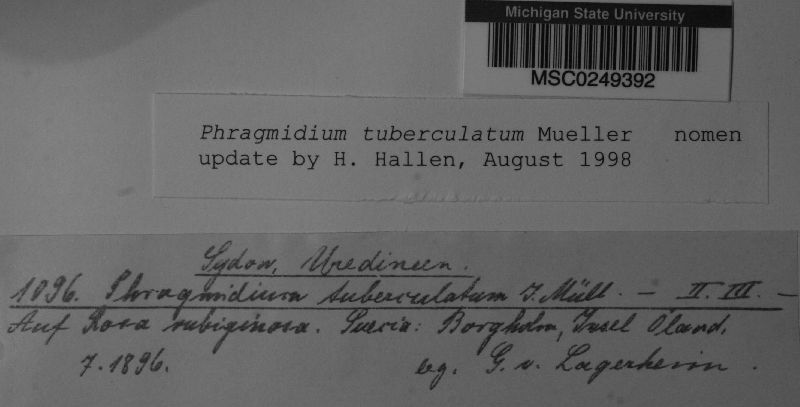 Michigan State University
MSC0249392
Phragmidium tuberculatum Mueller nomen
update by H. Hallen, August 1998
Sydow, Uredineen.
1096. Phragmidium tuberculatum J. Müll. — II. III. —
Auf Rosa rubiginosa. Suecia: Borgholm, Insel Öland.
7. 1896. leg. G. v. Lagerheim.